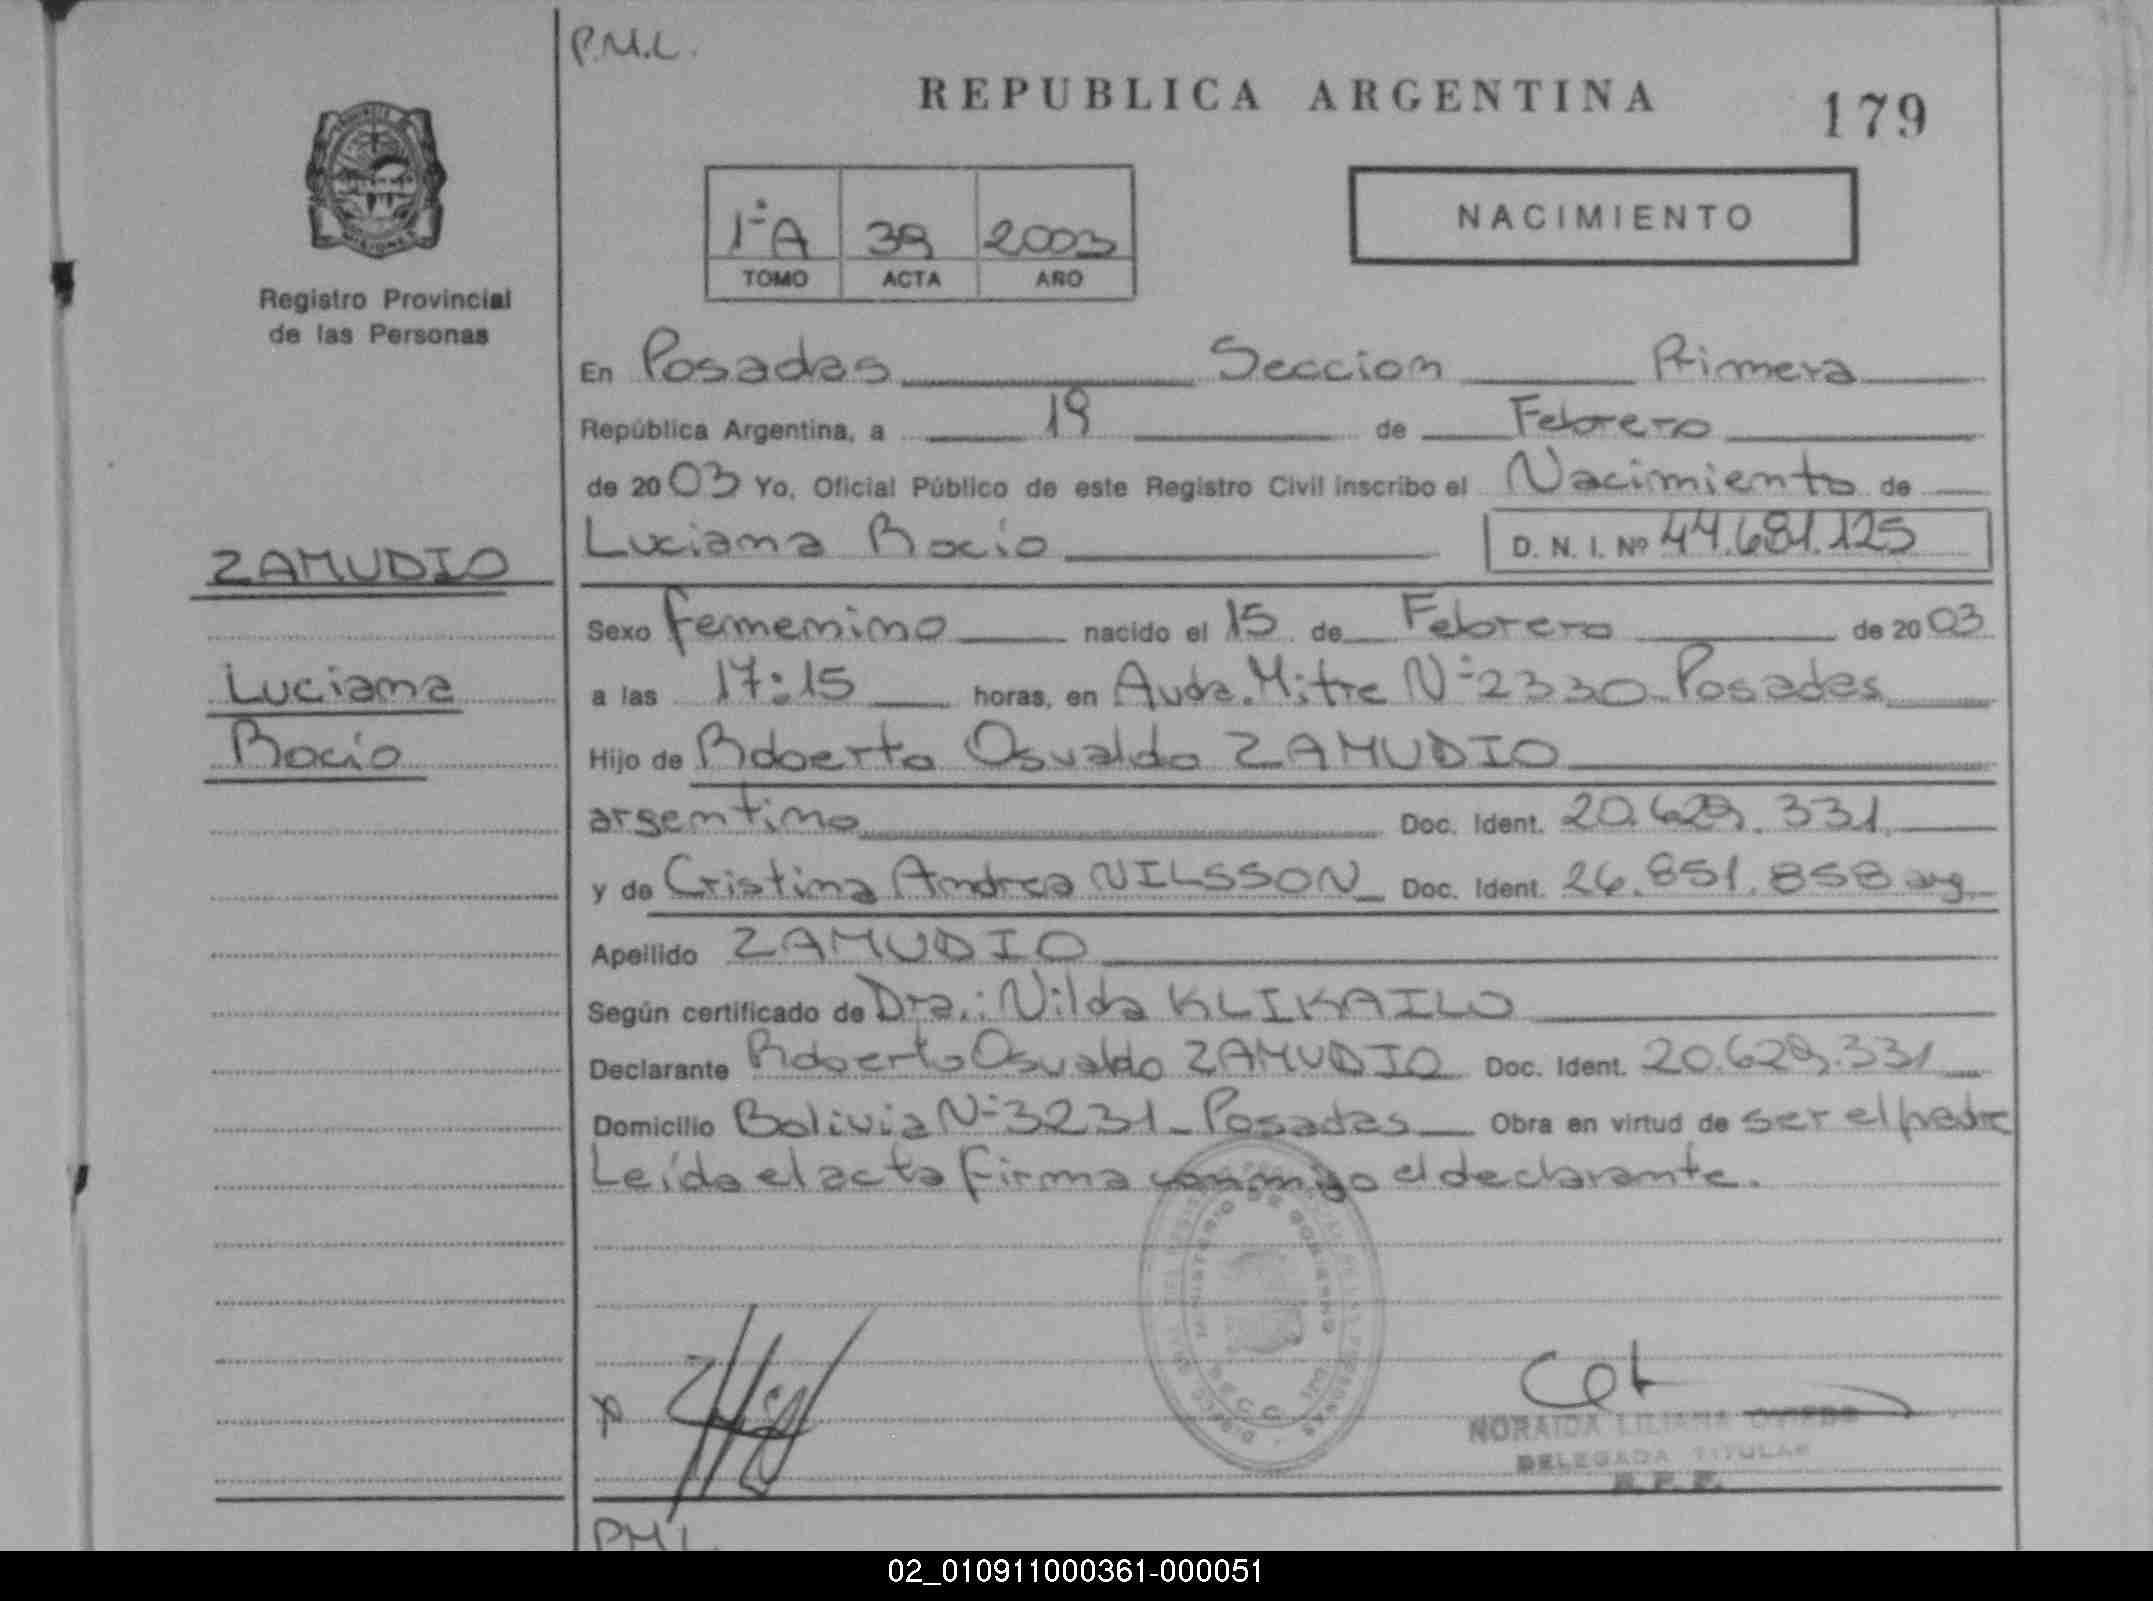 P.M.L.
REPUBLICA ARGENTINA
179
1ºA 39 2003
TOMO ACTA AÑO
NACIMIENTO
Registro Provincial
de las Personas
En Posadas Seccion Primera
República Argentina, a 19 de Febrero
de 2003 Yo, Oficial Público de este Registro Civil inscribo el Nacimiento de
Luciana Rocio D. N. I. Nº 44.681.125
ZAMUDIO
Luciana
Rocio
Sexo femenino nacido el 15 de Febrero de 2003
a las 17:15 horas, en Avda. Mitre Nº 2330 Posadas
Hijo de Roberto Osvaldo ZAMUDIO
argentino Doc. Ident. 20.629.331
y de Cristina Andrea NILSSON Doc. Ident. 26.851.858 arg
Apellido ZAMUDIO
Según certificado de Dra.: Nilda KLIKAILO
Declarante Roberto Osvaldo ZAMUDIO Doc. Ident. 20.629.331
Domicilio Bolivia Nº 3231 - Posadas Obra en virtud de ser el padre
Leída el acta firma conmigo el declarante.
MINISTERIO DE GOBIERNO
NORAIDA LILIANA OVIEDO
DELEGADA TITULAR
R.P.P.
PML
02_010911000361-000051